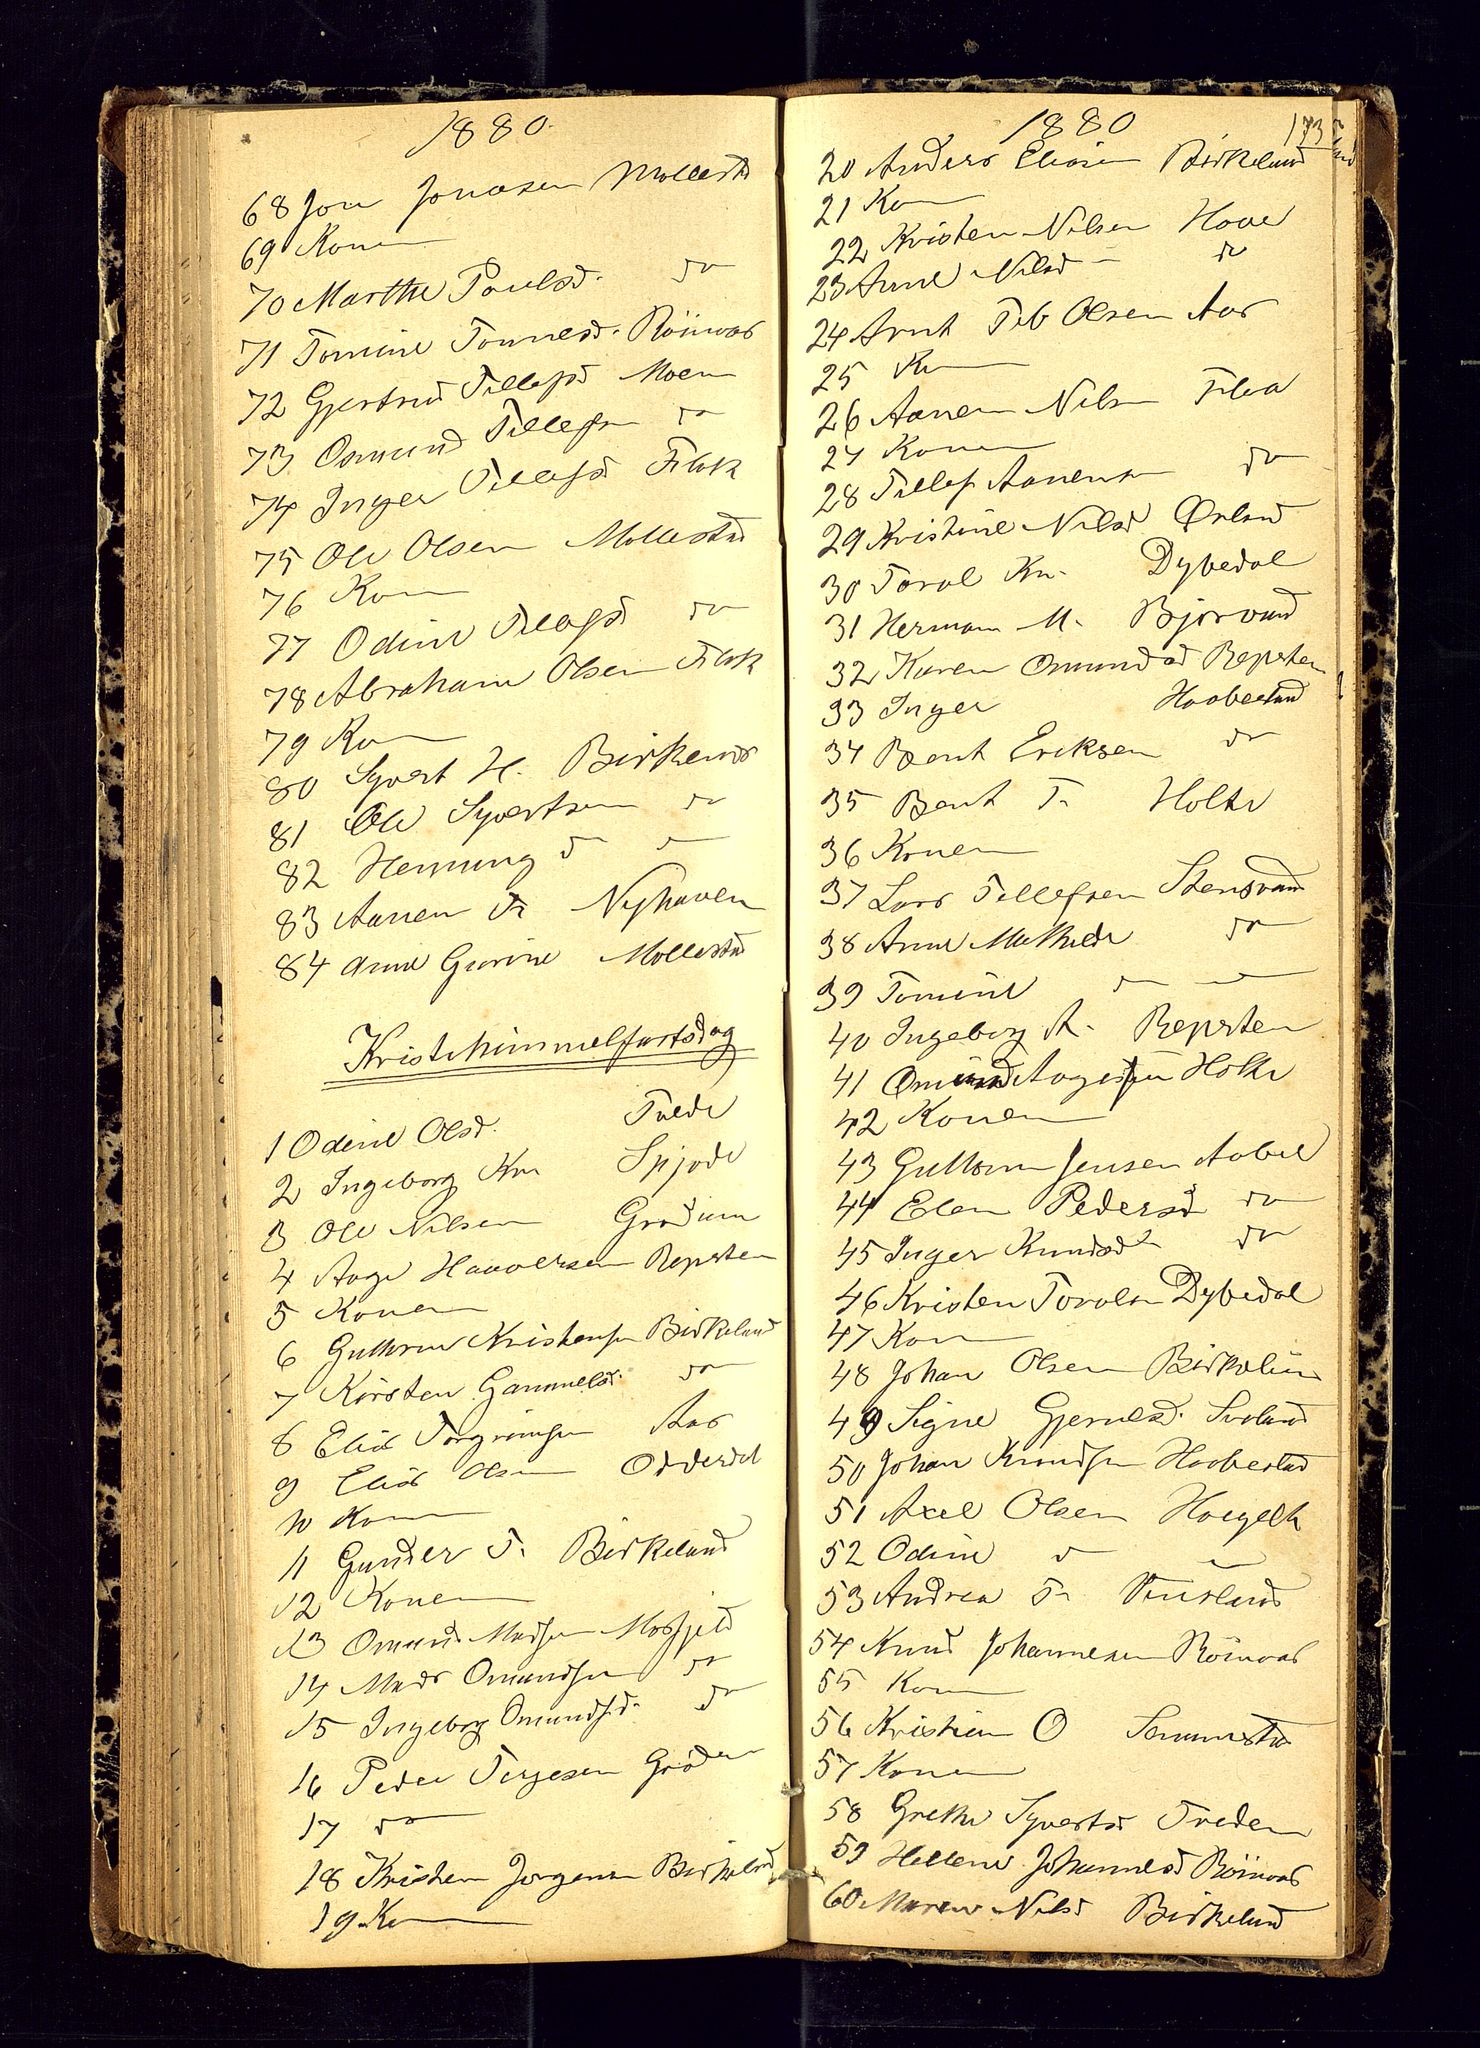 1880.
68 Jon Jonasen Mollestd
69 Konen
70 Marthe Poulsd. do
71 Tomine Tonnesd. Röinaas
72 Gjertrud Tellefsd Moen
73 Osmund Tellefsn do
74 Inger Tellefsd Flak
75 Ole Olsen Mollestad
76 Kon
77 Odine Tellefsd do
78 Abraham Olsen Flak
79 Kon
80 Syvert H. Birkenes
81 Ole Syvertsen do
82 Henning d
83 Aanen Nyhaven
84 Anne Gurine Mollestad
Kristihimmelfartsdag
1 Odine Olsd. Tvede
2 Ingeborg Kn Spjode
3 Ole Nilsen Grødum
4 Aage Haaversen Repsten
5 Konen
6 Guttorm Kristensn Birkeland
7 Kirsten Gammelsd. do
8 Elias Torgrimsen Aas
9 Elias Olsen Odderdal
10 Kon
11 Gunder T. Birkeland
12 Konen
13 Omund Madsen Mosfjeld
14 Mads Omundsen do
15 Ingeborg Omundsd. do
16 Peder Terjesen Grödum
17 do
18 Kristen Jørgensn Birkeland
19 Kon
1880 173
20 Anders Eliasen Birkeland
21 Kon
22 Kristen Nilsen Hove
23 Anne Nilsd do
24 Arnt Olsen Aas
25 Kn
26 Aanen Nilsn Flaa
27 Konen
28 Tellef Aanensn do
29 Kristine Nilsd Ørland
30 Toral Kn. Dybedal
31 Herman M. Bjorvand
32 Karen Omundsd Repsten
33 Inger Haabestad
34 Bent Eriksen do
35 Bent T. Holte
36 Konen
37 Lars Tellefsen Stensvand
38 Anne Mathilde do
39 Tomine do
40 Ingeborg A. Repsten
41 Omund Aagesen Holte
42 Konen
43 Guttorm Jensen Aabel
44 Elen Pedersd do
45 Inger Knudsd do
46 Kristen Toralsn Dybedal
47 Kon
48 Johan Olsen Birkelien
49 Signe Gjerulsd. Svaland
50 Johan Knudsen Haabestad
51 Axel Olsen Hoygilt
52 Odine d
53 Andrea T.
54 Knud Johannesen Röinaas
55 Kon
56 Kristian O
57 Konen
58 Grethe Syvertsd Treden
59 Hellene Johannesd Röinaas
60 Maren Nilsd Birkeland